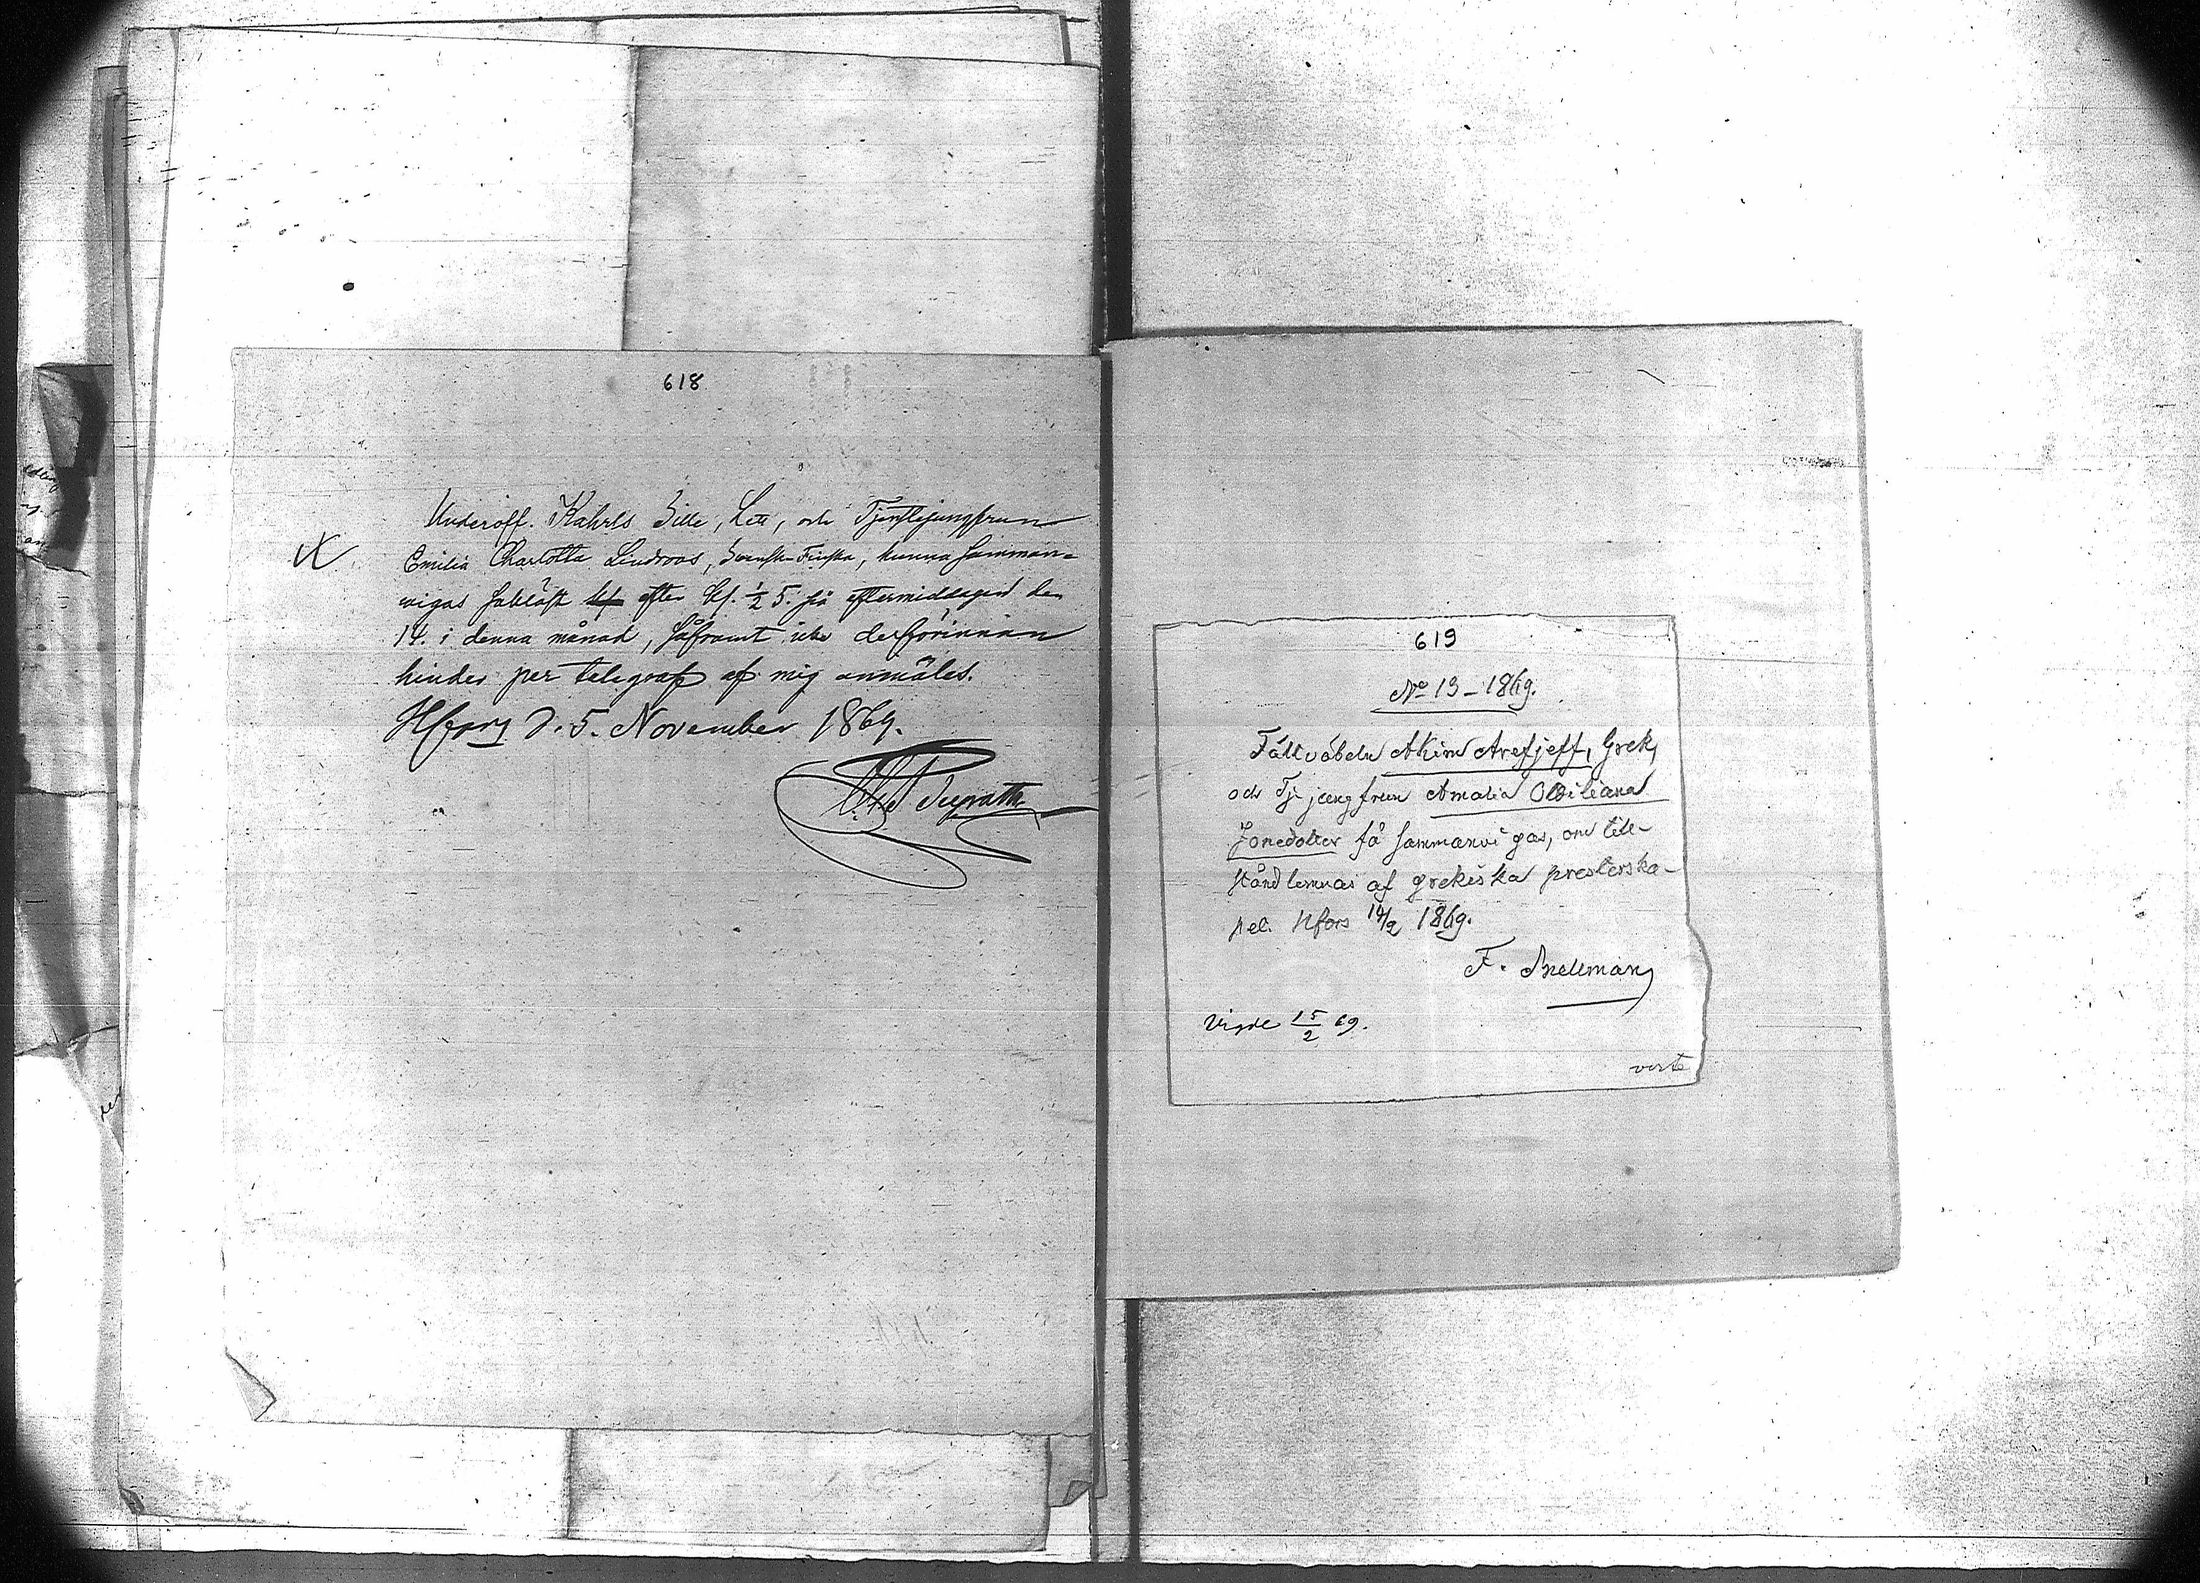 618
Underoff. Kahrls Sille, Lett, och Tjenstejungfrun
Emilia Charlotta Lindroos, Svensk-Finska, kunna samman-
vigas såbläst efter kl. ½ 5. på eftermiddagen den
14. i denna månad, såframt icke derförinnan
hinder per telegraf af mig anmäles.
Hfors d. 5. November 1869.
619
No 13 - 1869.
Fältväbeln Akim Arefjeff, Grek,
och Tj. jungfrun Amalia Ottiliana
Jonedotter få sammanvigas, om till-
stånd lemnas af grekiska presterska-
pet. Hfors 14/2 1869.
F. Snellman
Vigde 15/2 69.
vert